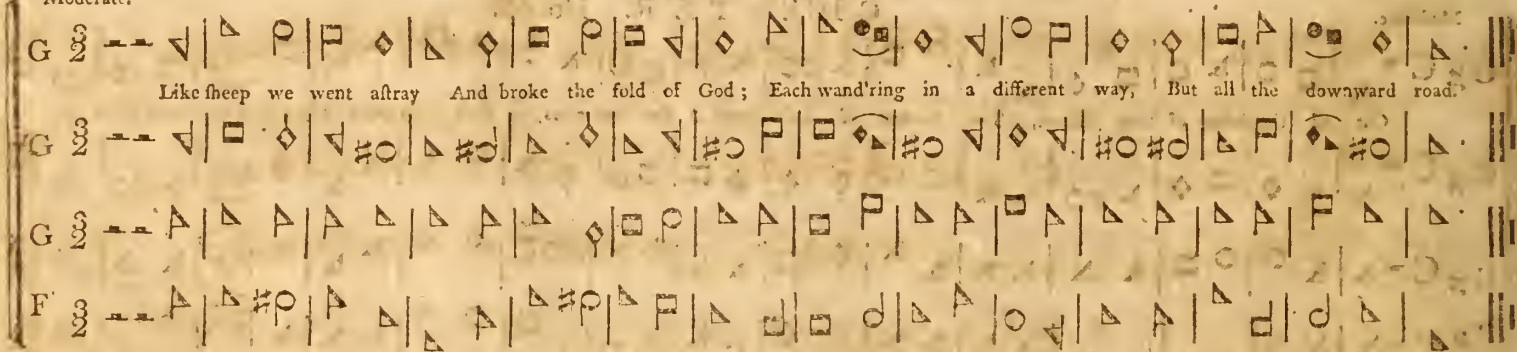 Moderate.
G 3 2
Like ſheep we went aſtray And broke the fold of God; Each wand'ring in a different way, But all the downward road.
G 3 2
G 3 2
F 3 2